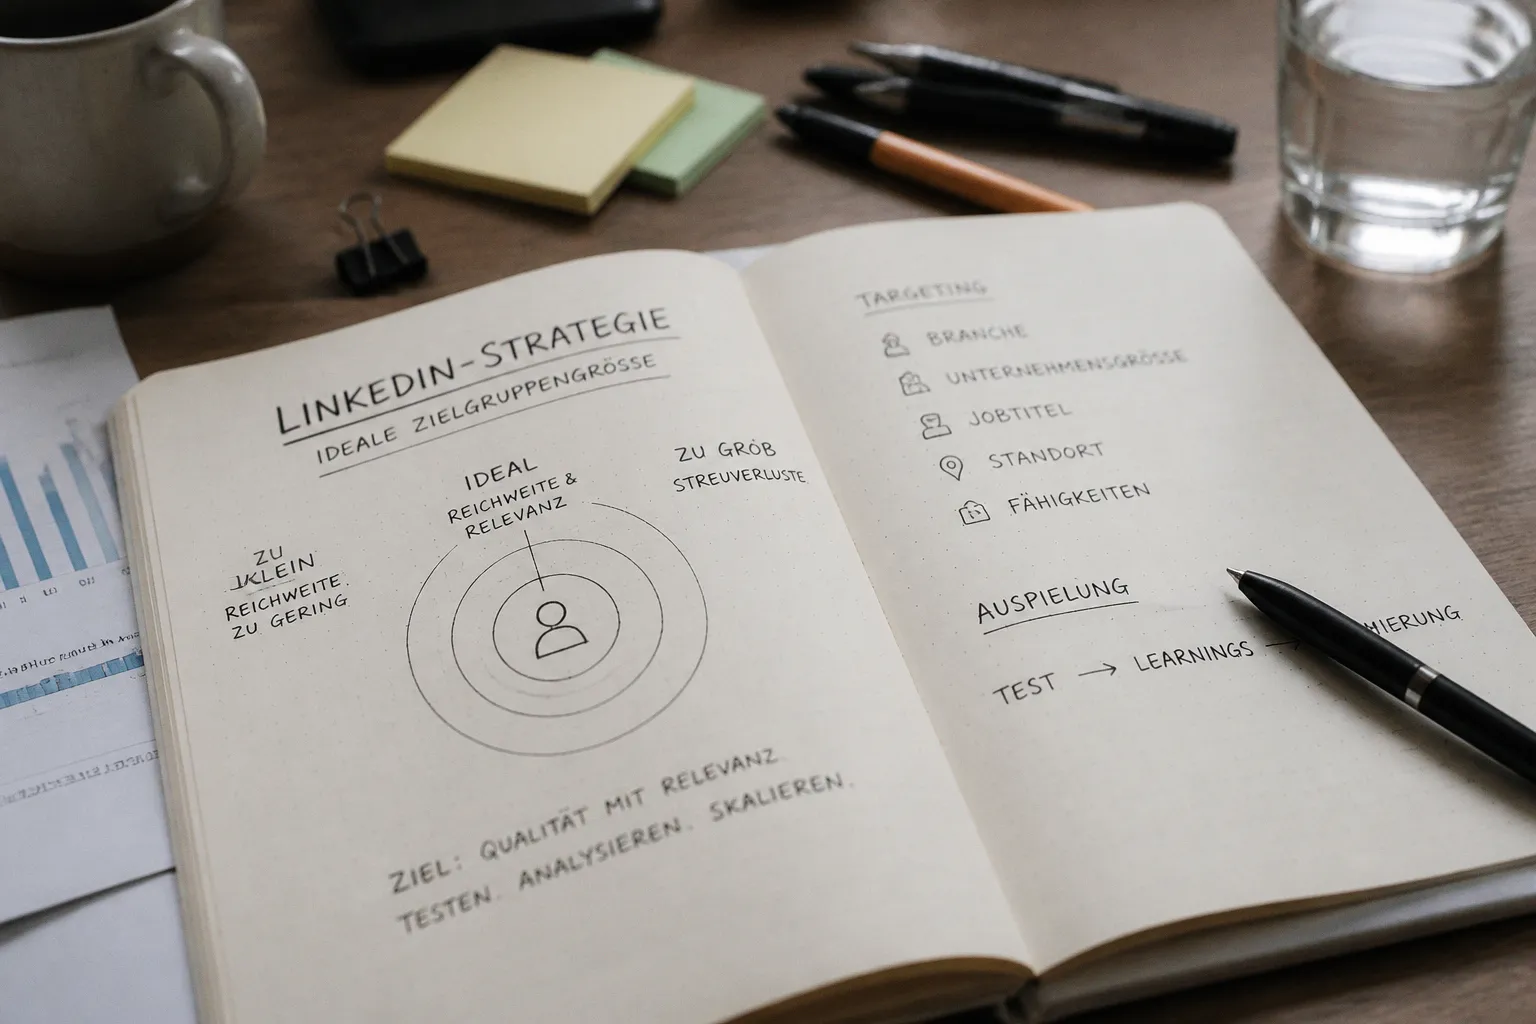 LINKEDIN-STRATEGIE
IDEALE ZIELGRUPPENGRÖSSE
IDEAL
REICHWEITE &
RELEVANZ
ZU GROB
STREUVERLUSTE
ZU
KLEIN
REICHWEITE
ZU GERING
ZIEL: QUALITÄT MIT RELEVANZ.
TESTEN. ANALYSIEREN. SKALIEREN.
TARGETING
BRANCHE
UNTERNEHMENSGRÖSSE
JOBTITEL
STANDORT
FÄHIGKEITEN
AUSPIELUNG
TEST → LEARNINGS → MIERUNG